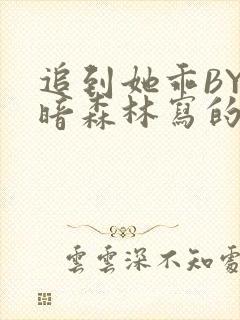 追到她乖BY
暗森林寫的
雲雲深不知處